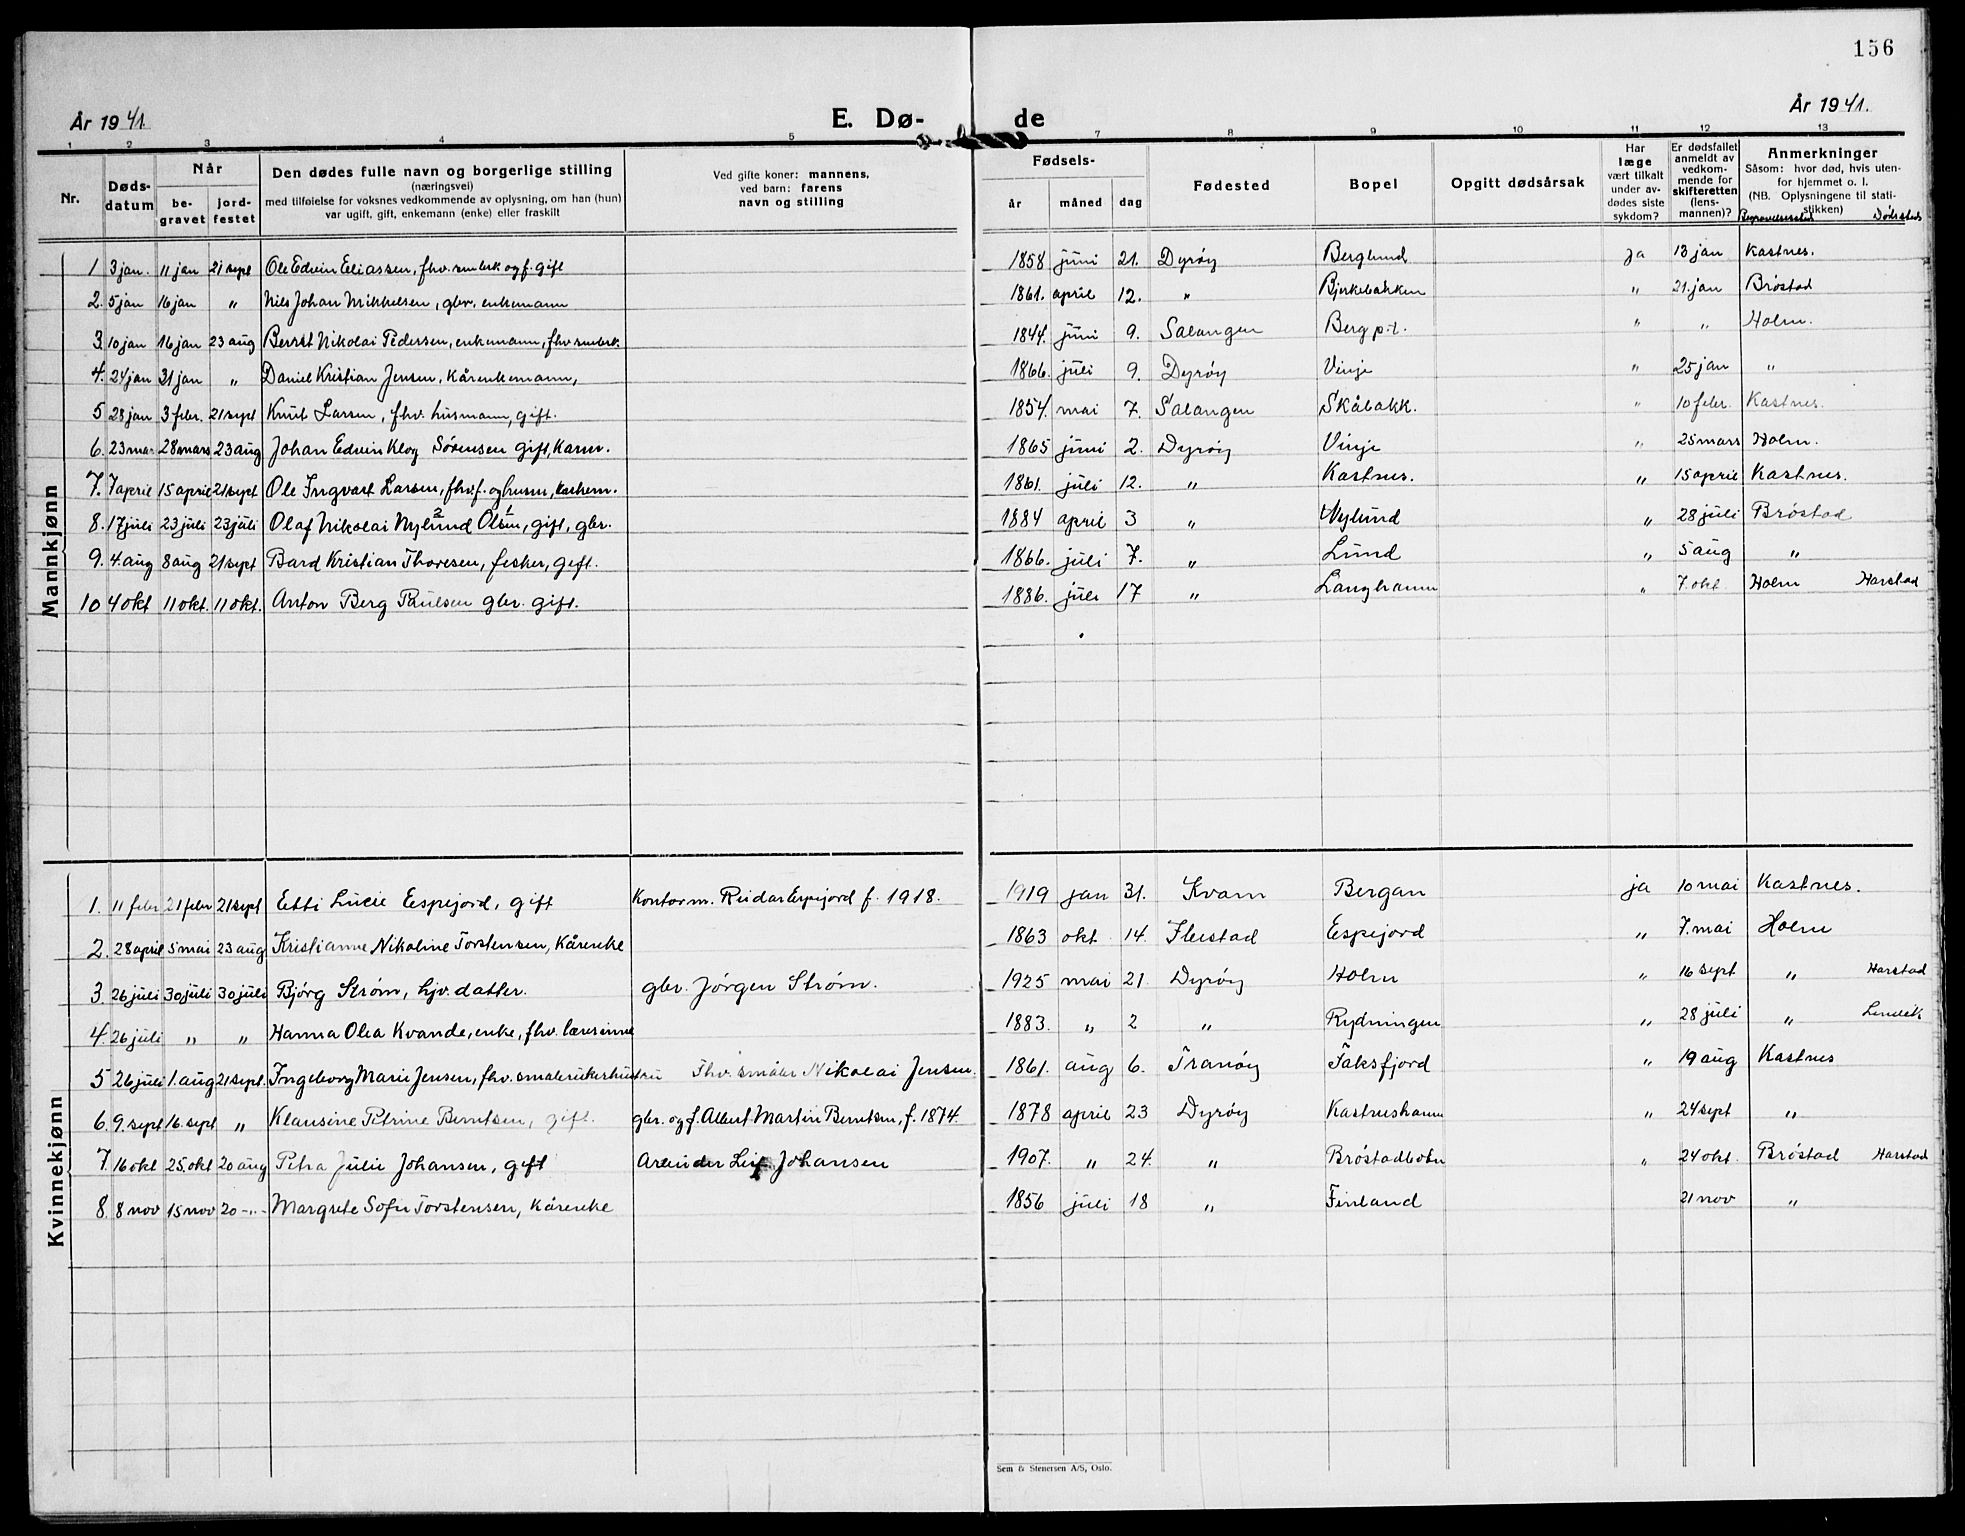 156
År 1941
E. Dø-
de
År 1941.
1 2 3 4 5 7 8 9 10 11 12 13
Nr. Døds-datum Når be-gravet jord-festet Den dødes fulle navn og borgerlige stilling (næringsvei) med tilføielse for voksnes vedkommende av oplysning, om han (hun) var ugift, gift, enkemann (enke) eller fraskilt Ved gifte koner: mannens, ved barn: farens navn og stilling Fødsels- år måned dag Fødested Bopel Opgitt dødsårsak Har læge vært tilkalt under av-dødes siste sykdom? Er dødsfallet anmeldt av vedkom-mende for skifteretten (lens-mannen)? Anmerkninger Såsom: hvor død, hvis uten-for hjemmet o. l. (NB. Oplysningene til stati-stikken) Begravelsessted Dødssted
Mannkjønn
1 3 jan. 11 jan 21 sept Ole Edvin Eliassen, fhv. smbrk og f. gift 1858 juni 21. Dyrøy Berglund ja 13 jan Kastnes.
2. 5 jan 16 jan " Nils Johan Mikkelsen, gbr. enkemann 1861. april 12. " Bjerkebakken " 21. jan Brøstad
3. 10 jan 16 jan 23 aug Nikolai Pedersen, enkemann, fhv smbrk. 1844. juni 9. Salangen Berg p.t. " " Holm.
4. 24 jan 31 jan " Daniel Kristian Jensen, Kårenkemann, 1866. juli 9. Dyrøy Vinje " 25 jan "
5 28 jan 3 febr. 21 sept Knut Larsen, fhv. husmann, gift. 1854. mai 7. Salangen Skåbakk. " 10 febr. Kastnes.
6. 23 mar 28 mars 23 aug Johan Edvin Klog Sørensen gift, Karm. 1865 juni 2. Dyrøy Vinje " 25 mars Holm.
7. 7 april 15 april 21 sept Ole Ingvart Larsen, fhv. f. og husm, 1861. juli 12. " Kastnes. " 15 april Kastnes.
8. 17 juli 23 juli 23 juli Olaf Nikolai Nylund 2 Olsen 1, gift, gbr. 1884 april 3 " Nylund " 28 juli Brøstad
9. 4. aug 8 aug 21 sept Bard Kristian Thoresen, fisker, gift. 1866. juli 7. " Lund " 5 aug "
10 4 okt 11 okt. 11 okt. Anton Berg Paulsen gbr. gift. 1886. juli 17 " Langhamn " 7. okt Holm Harstad
Kvinnekjønn
1. 11 febr 21 febr 21 sept Etti Lucie Espejord, gift Kontorm. Reidar Espejord f. 1918. 1919 jan 31. Kvam Bergan ja 10 mai Kastnes.
2. 28 april 5 mai 23 aug Kristianne Nikoline Torstensen, Kårenke 1863 okt 14. Flustad Espejord " 7. mai Holm
3. 26 juli 30 juli 30 juli Bjørg Strøm, hjv. datter. gbr. Jørgen Strøm. 1925 mai 21. Dyrøy Holm " 16 sept " Harstad
4. 26 juli " " Hanna Olea Kvande, enke, fhv. lærerinne 1883. " 2 " Rydningen " 28 juli "
5 26 juli 1. aug 21 sept. Ingeborg Marie Jensen, fhv. smabrukerhustru Fhv. småbr Nikolai Jensen. 1861. aug 6. Tranøy Faksfjord " 19 aug Kastnes
6. 9. sept 16. sept " Klausine Petrine Berntsen, gift. gbr. og f. Albert Martin Berntsen, f. 1874. 1878 april 23 Dyrøy Kastneshamn " 24 sept "
7. 16 okt 25. okt 20 aug Petra Julie Johansen, gift Arbeider Leif Johansen 1907. " 24. " Brøstadbotn " 24 okt. Brøstad Harstad
8. 8 nov 15 nov 20 -"- Margrete Sofie Torstensen, Kårenke 1856 juli 18 " Finland 21 nov "
Sem & Stenersen A/S, Oslo.